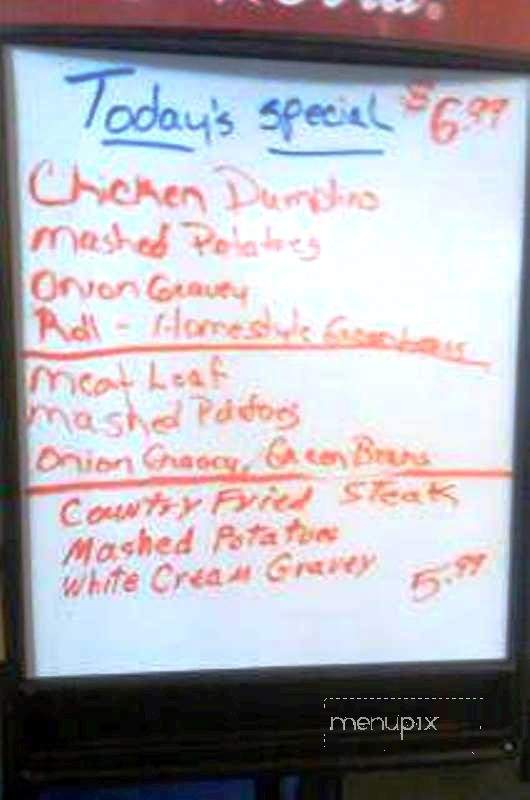 Today's special $6.99
Chicken Dumplins
Mashed Potatoes
Onion Gravey
Roll - Homestyle Greenbeans
Meat Loaf
Mashed Patatoes
Onion Gravey, Green Beans
Country Fried Steak
Mashed Potatoes
White Cream Gravey 5.99
menupix